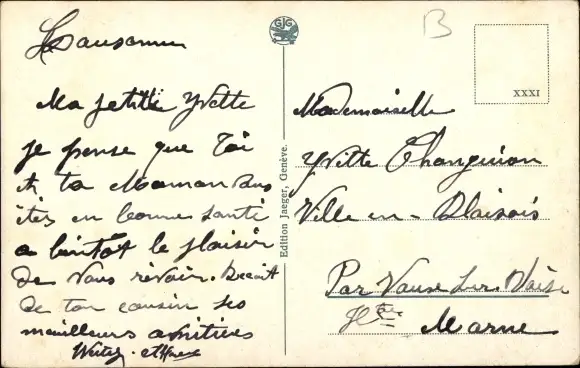 Lausanne
Ma petite Yvette
je pense que Toi
et ta Maman vous
êtes en bonne santé
a bientôt le plaisir
de vous revoir. Reçoit
de ton cousin ses
meilleurs amitiées
GJG
Edition Jaeger, Genève.
B
XXXI
Mademoiselle
Yvette Changuion
Ville-en-Blaisois
Par Vaux sur Blaise
Hte Marne